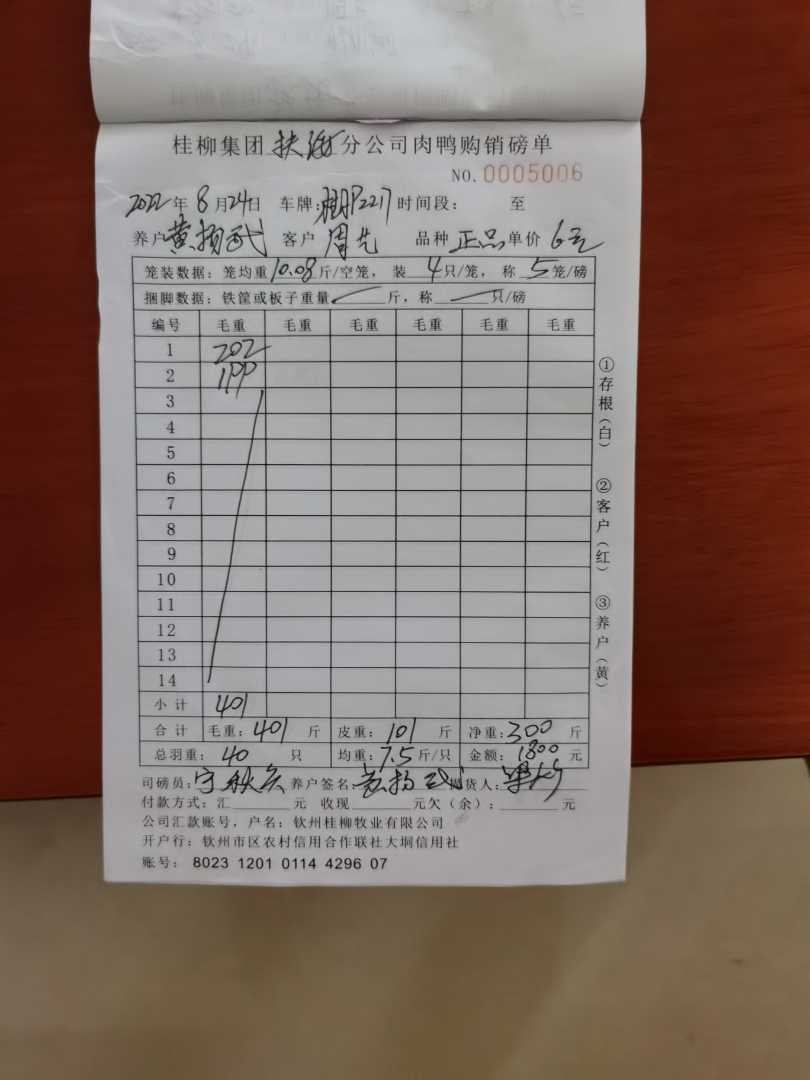 桂柳集团 扶绥 分公司肉鸭购销磅单
NO. 0005006
2022年 8月24日 车牌: 时间段: 至
养户 黄扬武 客户 周先 品种 正品 单价 6元
笼装数据: 笼均重 10.08 斤/空笼, 装 4 只/笼, 称 5 笼/磅
捆脚数据: 铁筐或板子重量 斤, 称 只/磅
编号 毛重 毛重 毛重 毛重 毛重 毛重
1 202
2 199
3
4
5
6
7
8
9
10
11
12
13
14
小计 401
合计 毛重: 401 斤 皮重: 101 斤 净重: 300 斤
总羽重: 40 只 均重: 7.5 斤/只 金额: 1800 元
司磅员: 养户签名: 黄扬武 提货人:
付款方式: 汇 元 收现 元 欠(余): 元
公司汇款账号, 户名: 钦州桂柳牧业有限公司
开户行: 钦州市区农村信用合作联社大垌信用社
账号: 8023 1201 0114 4296 07
①存根(白)
②客户(红)
③养户(黄)